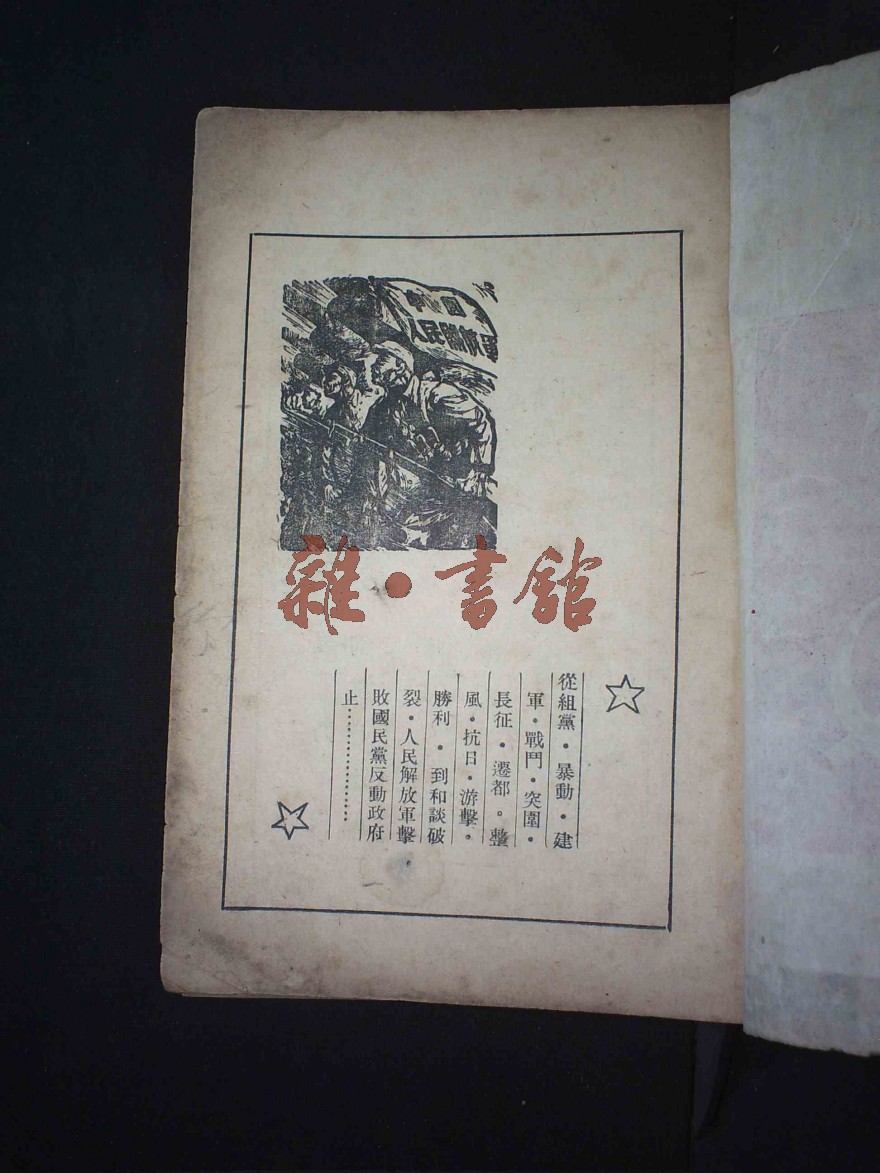 中國
人民解放軍
雜·書館
從組黨·暴動·建
軍·戰鬥·突圍·
長征·遷都。整
風·抗日·游擊。
勝利·到和談破
裂·人民解放軍擊
敗國民黨反動政府
止………………